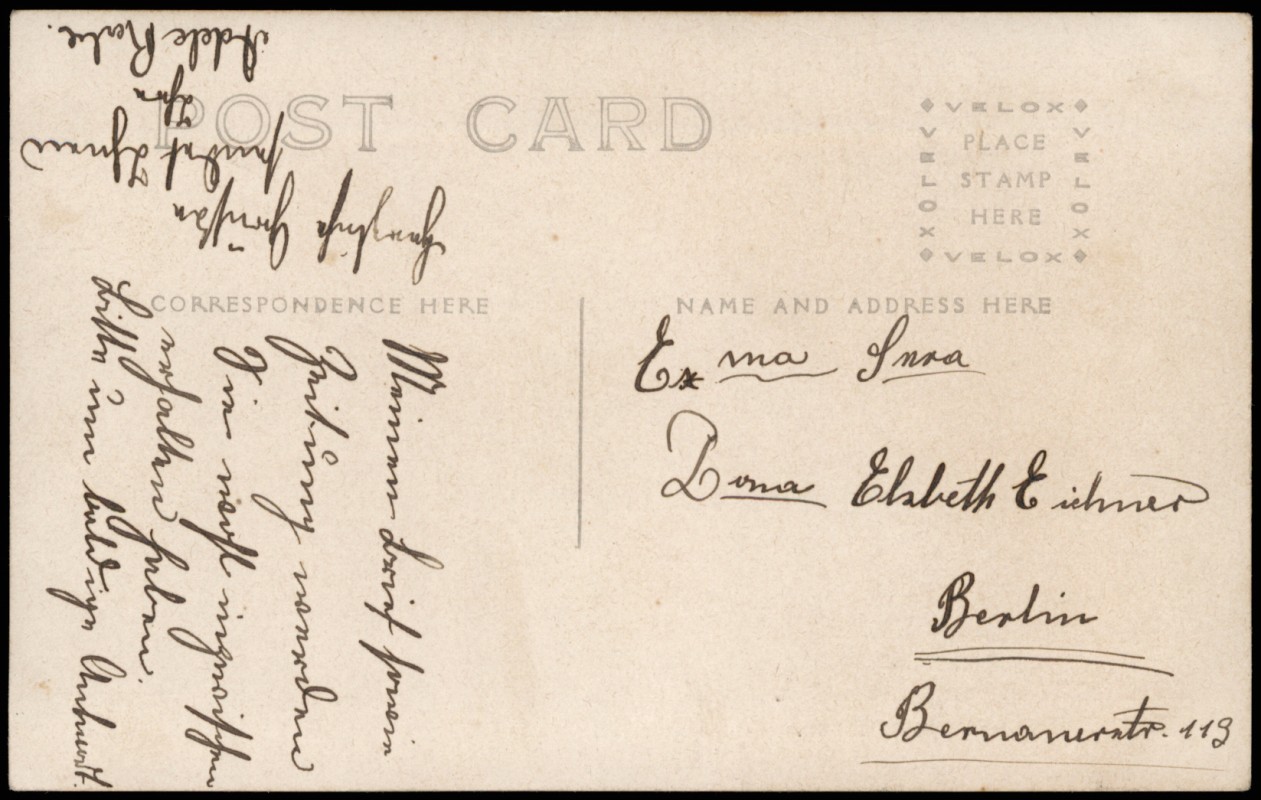 POST CARD
VELOX
VELOX
PLACE
STAMP
HERE
VELOX
VELOX
CORRESPONDENCE HERE
NAME AND ADDRESS HERE
Meinen Brief sowie
Zeitung werden
Sie wohl inzwischen
erhalten haben.
Bitte um baldige Antwort.
Herzliche Grüße
sendet Ihnen
Ihre
Adele
Exma Snra
Dona Elsbeth Eichner
Berlin
Bernauerstr. 113